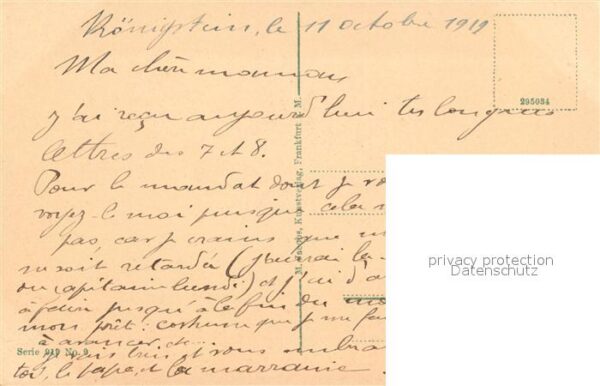 Königstein, le 11 octobre 1919
Ma chère maman
J'ai reçu aujourd'hui tes longues
lettres des 7 et 8.
Pour le mandat dont je
voyez-le moi puisque cela
pas, car je crains que
ne soit retardée (j'aurai la
ou capitaine lundi) et j'ai d'a
à faire jusqu'à la fin du
mon prêt : costume que je me fais
à avancer, etc.
Je vais bien et vous embra
toi, le pape, et la marraine.
295034
M. Jacobs, Kunstverlag, Frankfurt a. M.
Serie 919 No. 9
privacy protection
Datenschutz